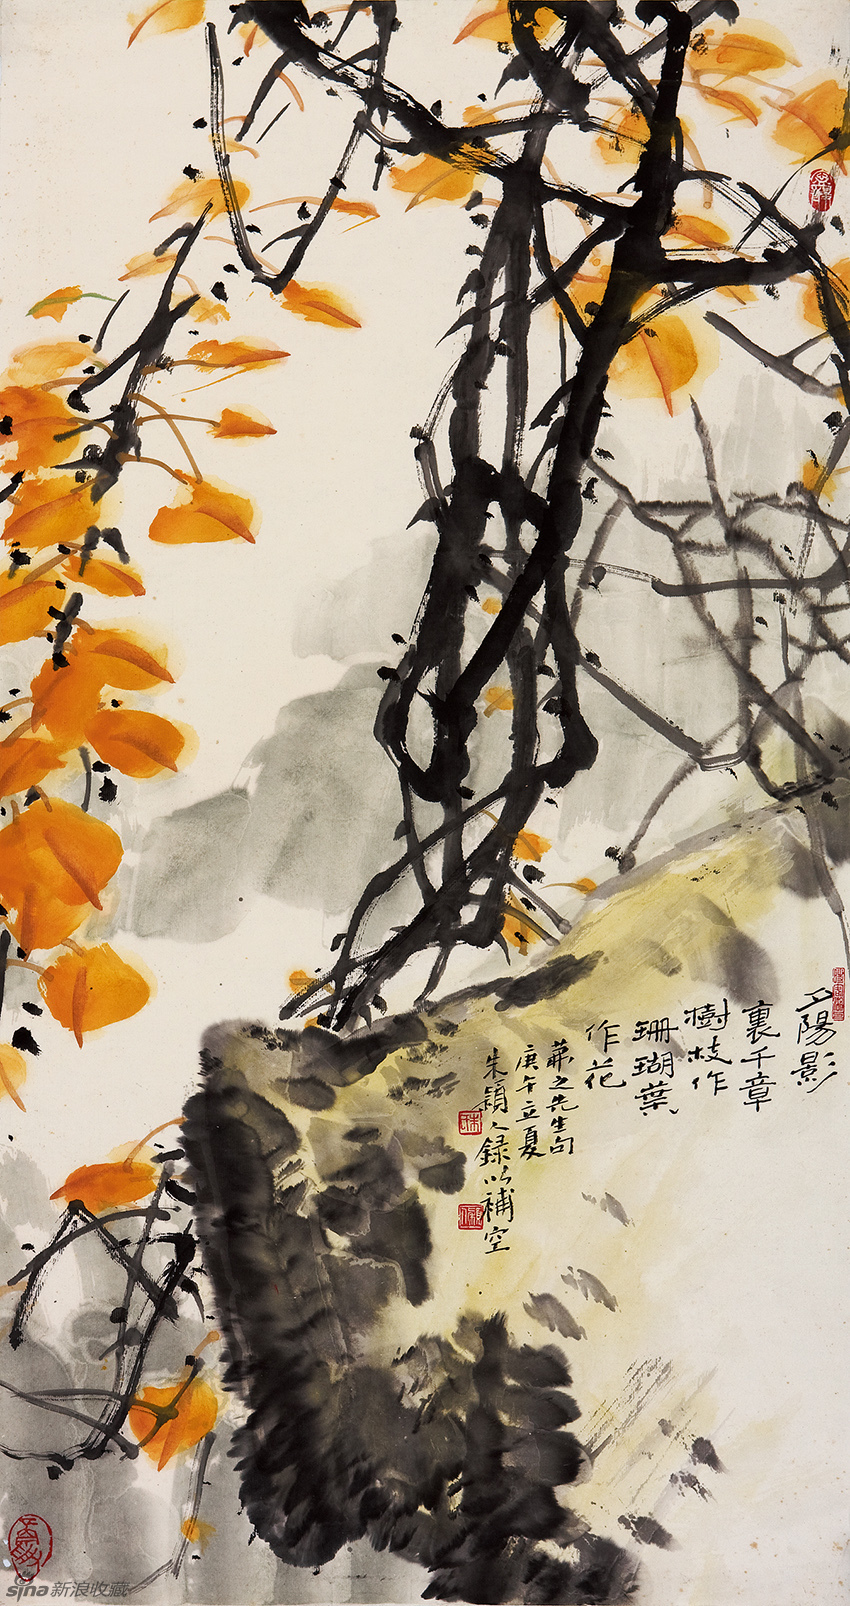 夕陽影
裏千章
樹枝作
珊瑚葉
作花
茀之先生句
庚午立夏
朱穎人録以補空
sina新浪收藏